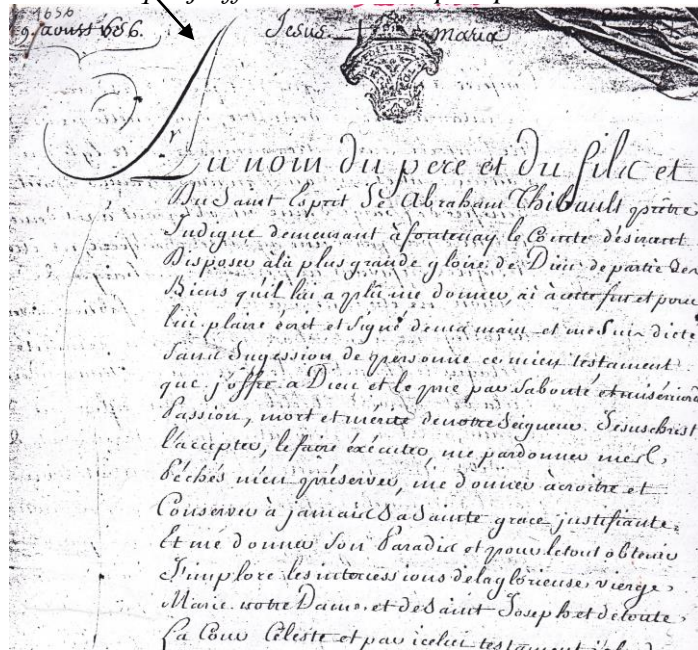 1656
9. aoust 1656. Jesus Maria
Au nom du pere et du fils et
Du Saint Esprit Je Abraham Thibault prêtre
Indigne demeurant à fontenay le Comte désirant
Disposer à la plus grande gloire de Dieu de partie des
Biens qu'il lui a plu me donner, ai à cette fin et pour
lui plaire écrit et signé de ma main et me suis dicté
sans sugession de personne ce mien testament
que j'offre a Dieu et le prie par sa bonté et miséricord
Passion, mort et mérite de notre Seigneur Jesus christ
l'accepter, le faire éxécuter, me pardonner mes
Péchés m'en préserver, me donner acroitre et
Conserver à jamais Sa Sainte grace justifiante
Et me donner Son Paradis et pour le tout obtenir
J'implore les intercessions de la glorieuse vierge
Marie notre Dame et de Saint Joseph et de toute
La Cour Céleste et par icelui testament